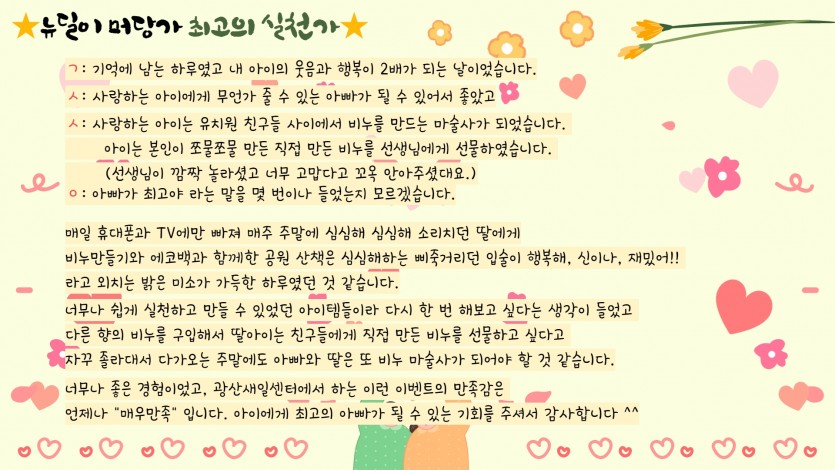 뉴딜이 머당가 최고의 실천가
ㄱ: 기억에 남는 하루였고 내 아이의 웃음과 행복이 2배가 되는 날이었습니다.
ㅅ: 사랑하는 아이에게 무언가 줄 수 있는 아빠가 될 수 있어서 좋았고
ㅅ: 사랑하는 아이는 유치원 친구들 사이에서 비누를 만드는 마술사가 되었습니다.
아이는 본인이 쪼물쪼물 만든 직접 만든 비누를 선생님에게 선물하였습니다.
(선생님이 깜짝 놀라셨고 너무 고맙다고 꼬옥 안아주셨대요.)
ㅇ: 아빠가 최고야 라는 말을 몇 번이나 들었는지 모르겠습니다.
매일 휴대폰과 TV에만 빠져 매주 주말에 심심해 심심해 소리치던 딸에게
비누만들기와 에코백과 함께한 공원 산책은 심심해하는 삐죽거리던 입술이 행복해, 신이나, 재밌어!!
라고 외치는 밝은 미소가 가득한 하루였던 것 같습니다.
너무나 쉽게 실천하고 만들 수 있었던 아이템들이라 다시 한 번 해보고 싶다는 생각이 들었고
다른 향의 비누를 구입해서 딸아이는 친구들에게 직접 만든 비누를 선물하고 싶다고
자꾸 졸라대서 다가오는 주말에도 아빠와 딸은 또 비누 마술사가 되어야 할 것 같습니다.
너무나 좋은 경험이었고, 광산새일센터에서 하는 이런 이벤트의 만족감은
언제나 "매우만족" 입니다. 아이에게 최고의 아빠가 될 수 있는 기회를 주셔서 감사합니다 ^^